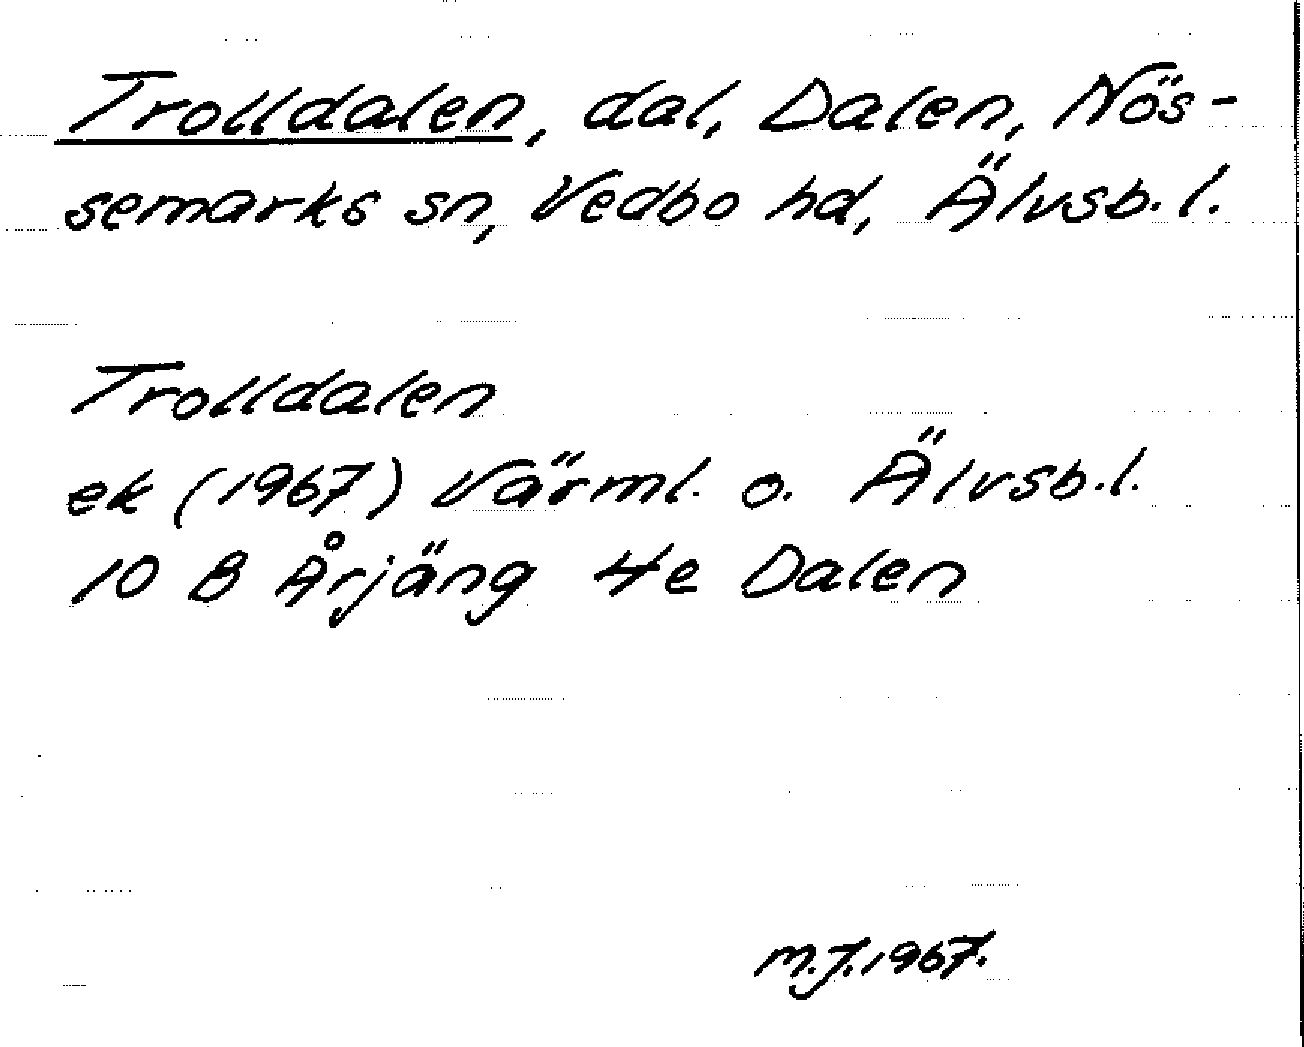 Trolldalen, dal, Dalen, Nös-
semarks sn, Vedbo hd, Älvsb.l.
Trolldalen
ek (1967) Värml. o. Älvsb.l.
10 B Årjäng 4e Dalen
M.J.1967.